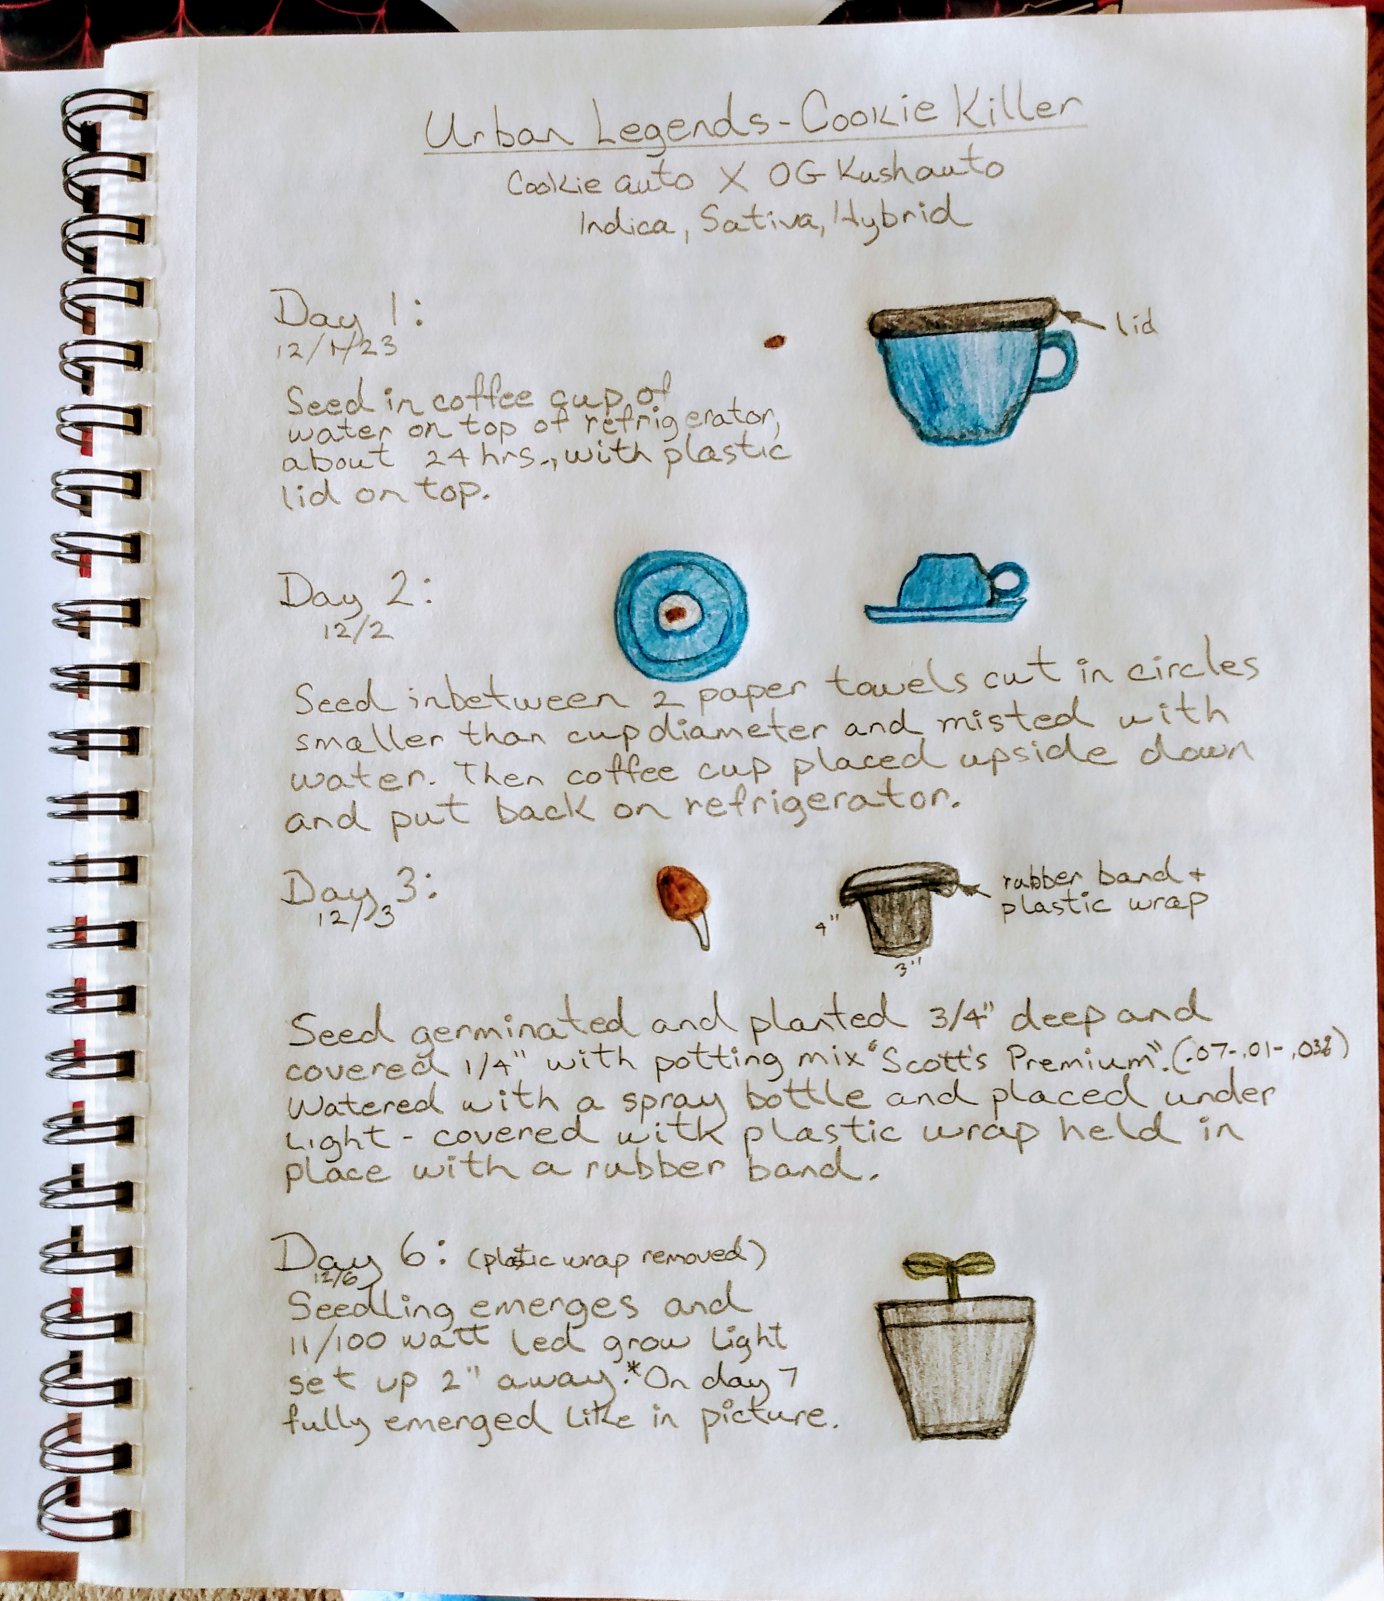 Urban Legends-Cookie Killer
Cookie auto X OG Kushauto
Indica, Sativa, Hybrid
Day 1:
12/1/23
lid
Seed in coffee cup of
water on top of refrigerator,
about 24 hrs., with plastic
lid on top.
Day 2:
12/2
Seed inbetween 2 paper towels cut in circles
smaller than cup diameter and misted with
water. Then coffee cup placed upside down
and put back on refrigerator.
Day 3:
12/3
rubber band +
plastic wrap
4"
3"
Seed germinated and planted 3/4" deep and
covered 1/4" with potting mix "Scott's Premium". (.07-.01-.03%)
Watered with a spray bottle and placed under
Light - covered with plastic wrap held in
place with a rubber band.
Day 6: (plastic wrap removed)
12/6
Seedling emerges and
11/100 watt led grow light
set up 2" away. *On day 7
fully emerged like in picture.